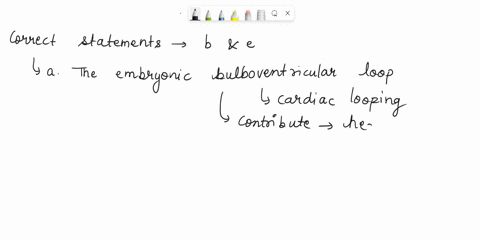 Correct statements → b & e
↳ a. The embryonic bulboventricular loop
↳ cardiac looping
↳ contribute → he-